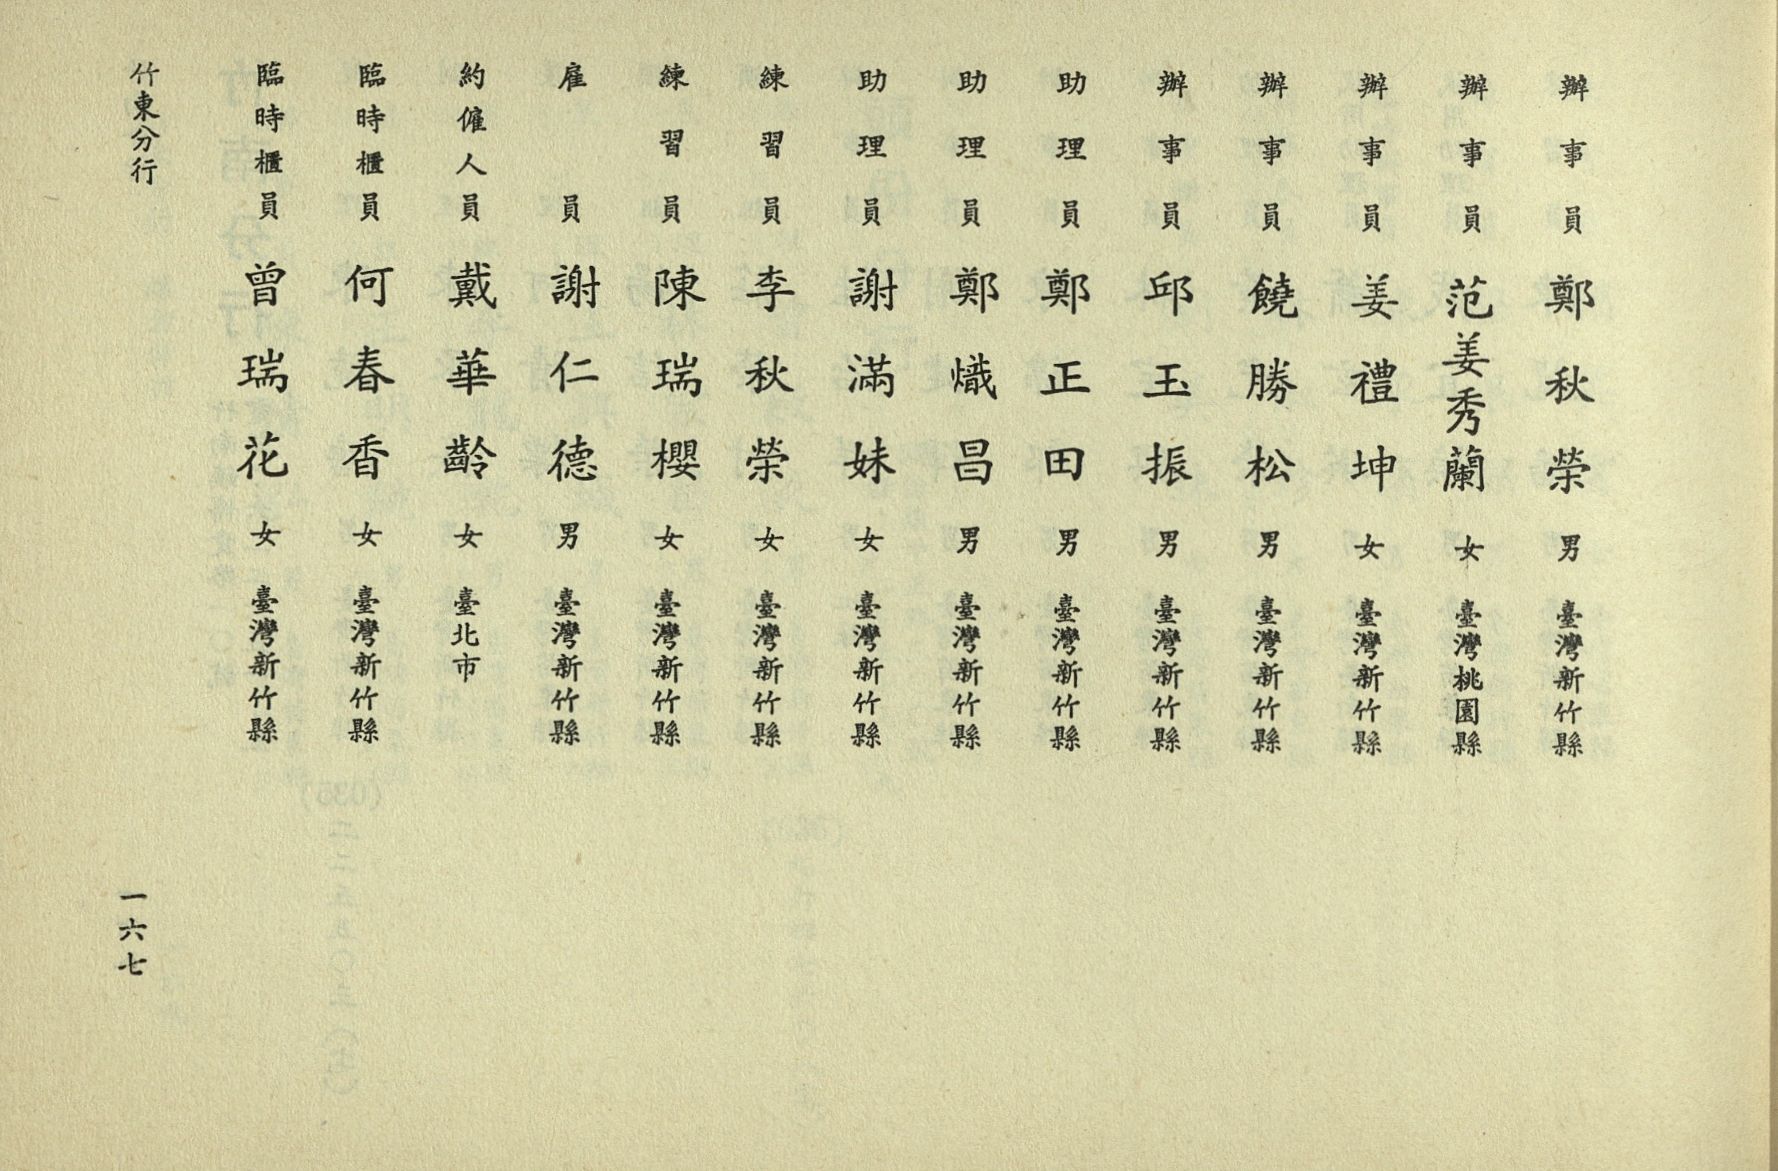 辦事員 鄭秋榮 男 臺灣新竹縣
辦事員 范姜秀蘭 女 臺灣桃園縣
辦事員 姜禮坤 女 臺灣新竹縣
辦事員 饒勝松 男 臺灣新竹縣
辦事員 邱玉振 男 臺灣新竹縣
助理員 鄭正田 男 臺灣新竹縣
助理員 鄭熾昌 男 臺灣新竹縣
助理員 謝滿妹 女 臺灣新竹縣
練習員 李秋榮 女 臺灣新竹縣
練習員 陳瑞櫻 女 臺灣新竹縣
雇員 謝仁德 男 臺灣新竹縣
約僱人員 戴華齡 女 臺北市
臨時櫃員 何春香 女 臺灣新竹縣
臨時櫃員 曾瑞花 女 臺灣新竹縣
竹東分行
一六七